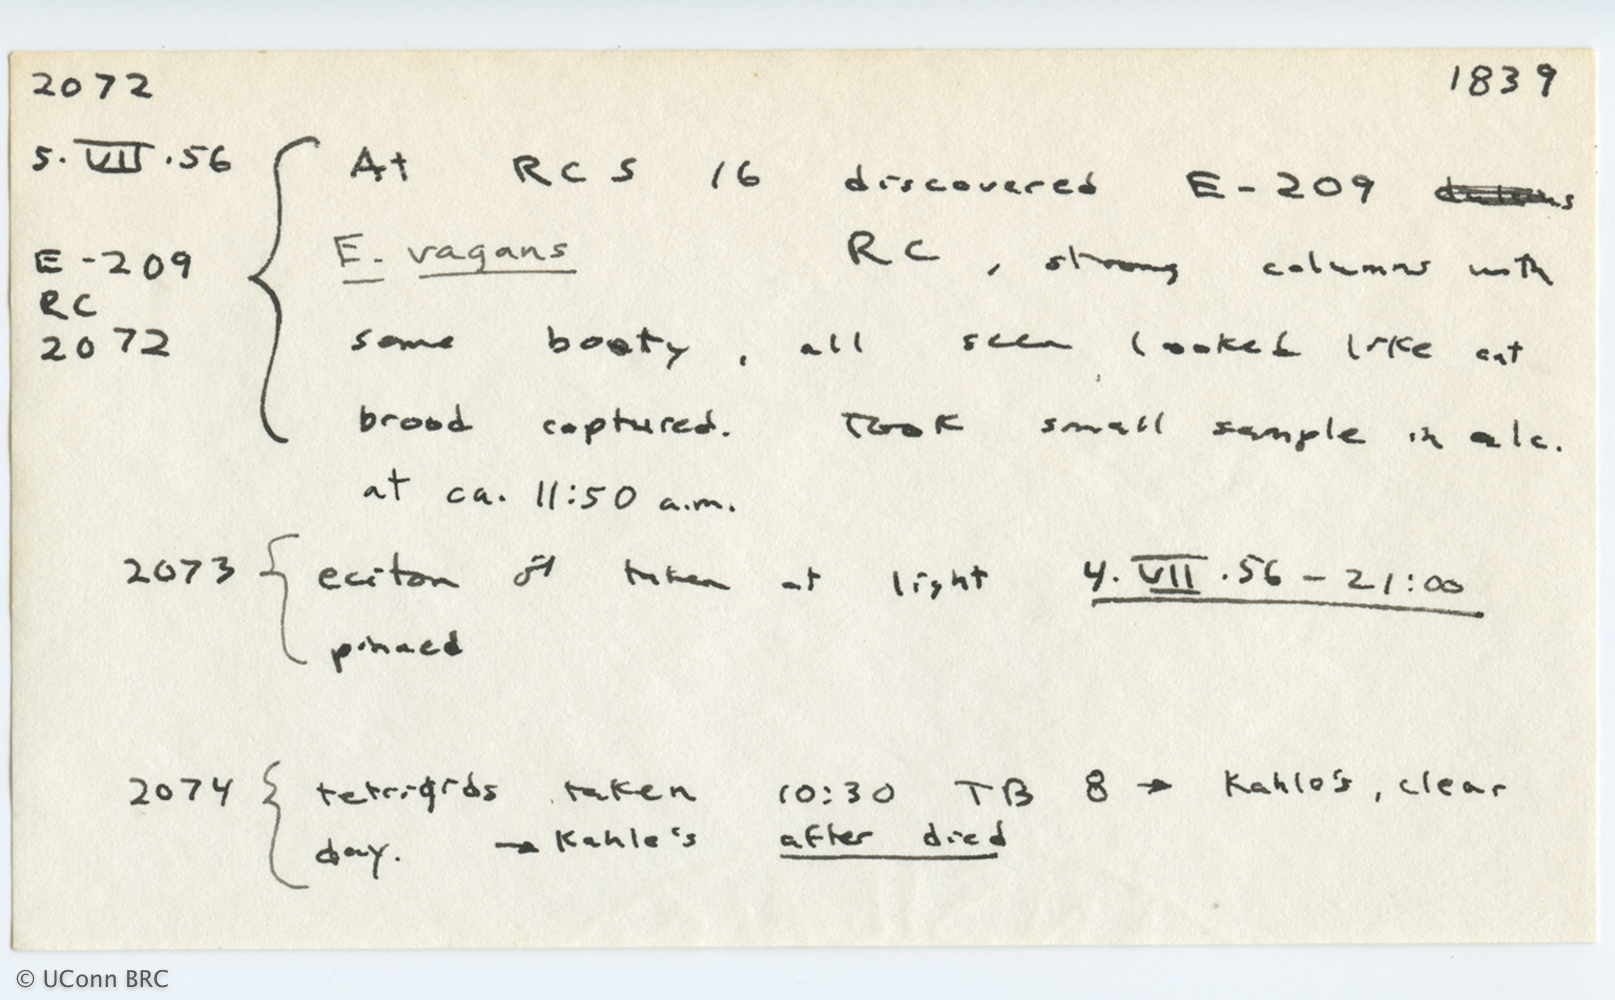 2072 1839
5.VII.56 At RCS 16 discovered E-209
E. vagans RC, strong columns with
E-209
RC
2072 some booty, all seen looked like ant
brood captured. Took small sample in alc.
at ca. 11:50 a.m.
2073 eciton ♂ taken at light 4.VII.56 - 21:00
pinned
2074 tetrigids taken 10:30 TB 8 → Kahle's, clear
day. → Kahle's after died
© UConn BRC